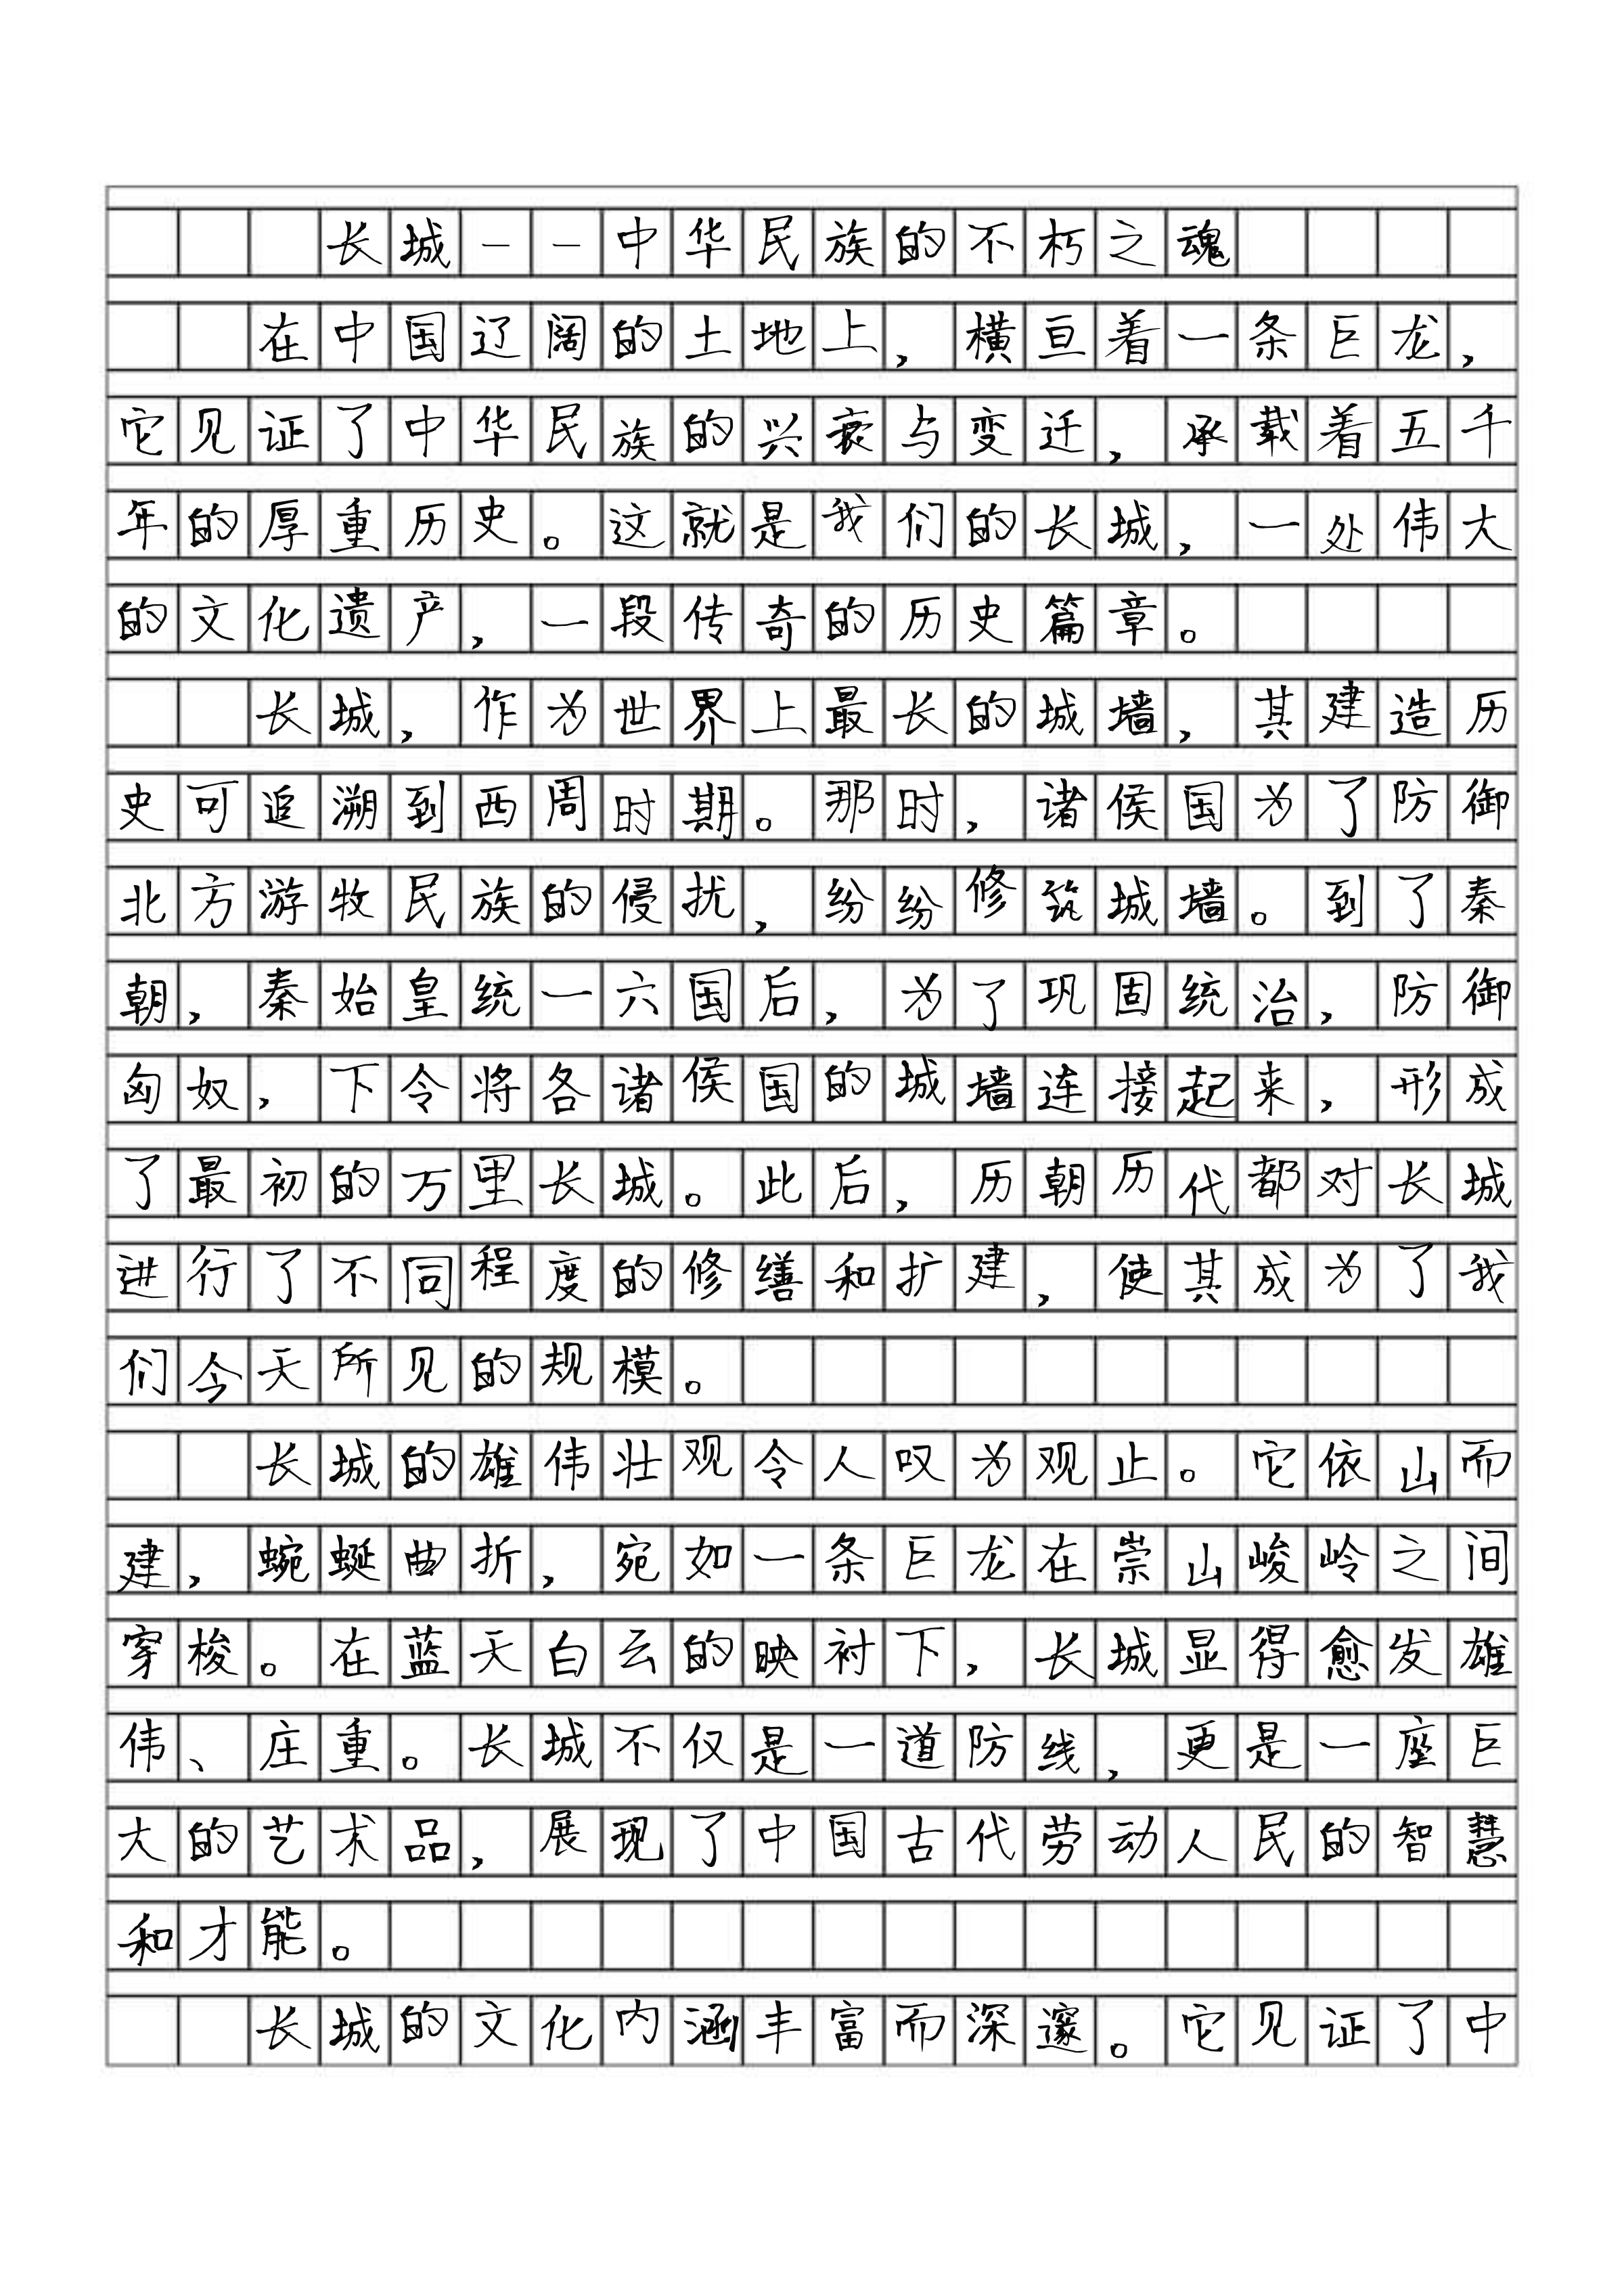 长城——中华民族的不朽之魂
在中国辽阔的土地上，横亘着一条巨龙，
它见证了中华民族的兴衰与变迁，承载着五千
年的厚重历史。这就是我们的长城，一处伟大
的文化遗产，一段传奇的历史篇章。
长城，作为世界上最长的城墙，其建造历
史可追溯到西周时期。那时，诸侯国为了防御
北方游牧民族的侵扰，纷纷修筑城墙。到了秦
朝，秦始皇统一六国后，为了巩固统治，防御
匈奴，下令将各诸侯国的城墙连接起来，形成
了最初的万里长城。此后，历朝历代都对长城
进行了不同程度的修缮和扩建，使其成为了我
们今天所见的规模。
长城的雄伟壮观令人叹为观止。它依山而
建，蜿蜒曲折，宛如一条巨龙在崇山峻岭之间
穿梭。在蓝天白云的映衬下，长城显得愈发雄
伟、庄重。长城不仅是一道防线，更是一座巨
大的艺术品，展现了中国古代劳动人民的智慧
和才能。
长城的文化内涵丰富而深邃。它见证了中